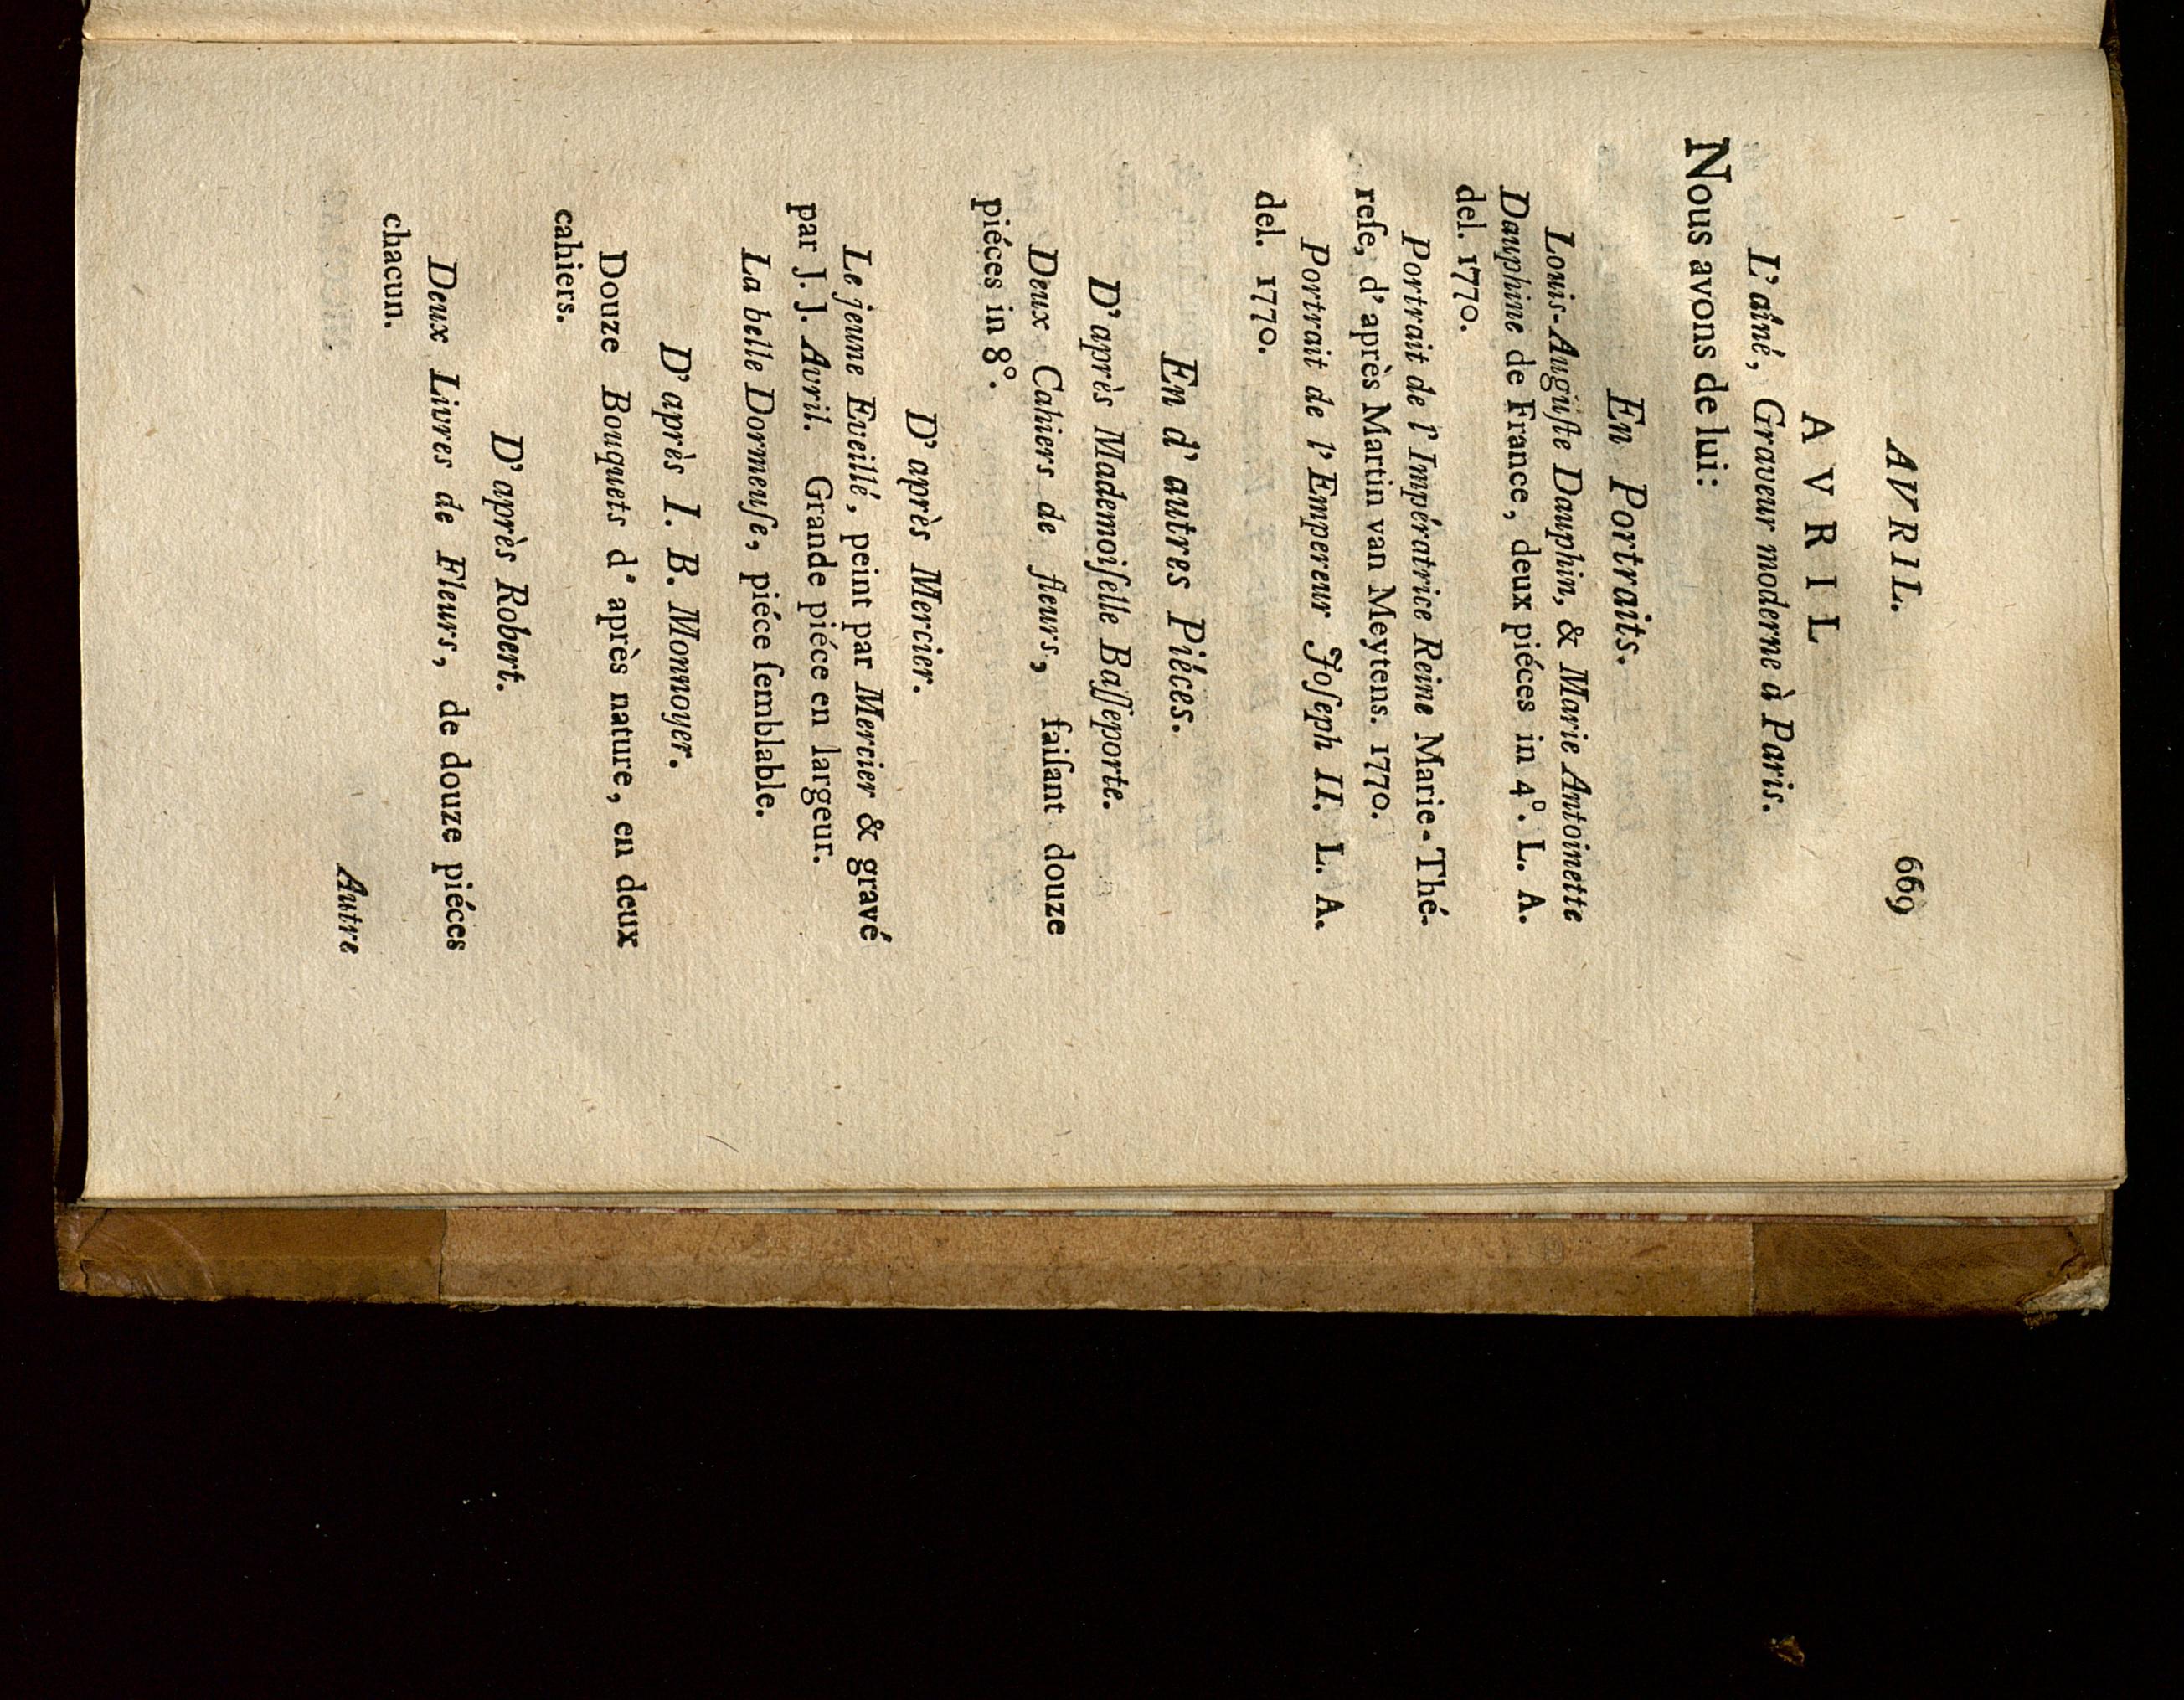 AVRIL. 669
AVRIL
L'ainé, Graveur moderne à Paris.
Nous avons de lui:
En Portraits.
Louis-Auguſte Dauphin, & Marie Antoinette
Dauphine de France, deux piéces in 4º. L. A.
del. 1770.
Portrait de l'Impératrice Reine Marie-Thé-
reſe, d'après Martin van Meytens. 1770.
Portrait de l'Empereur Joſeph II. L. A.
del. 1770.
En d'autres Piéces.
D'après Mademoiſelle Baſſeporte.
Deux Cahiers de fleurs, faiſant douze
piéces in 8º.
D'après Mercier.
Le jeune Eveillé, peint par Mercier & gravé
par J. J. Avril. Grande piéce en largeur.
La belle Dormeuſe, piéce ſemblable.
D'après I. B. Monnoyer.
Douze Bouquets d'après nature, en deux
cahiers.
D'après Robert.
Deux Livres de Fleurs, de douze piéces
chacun.
Autre